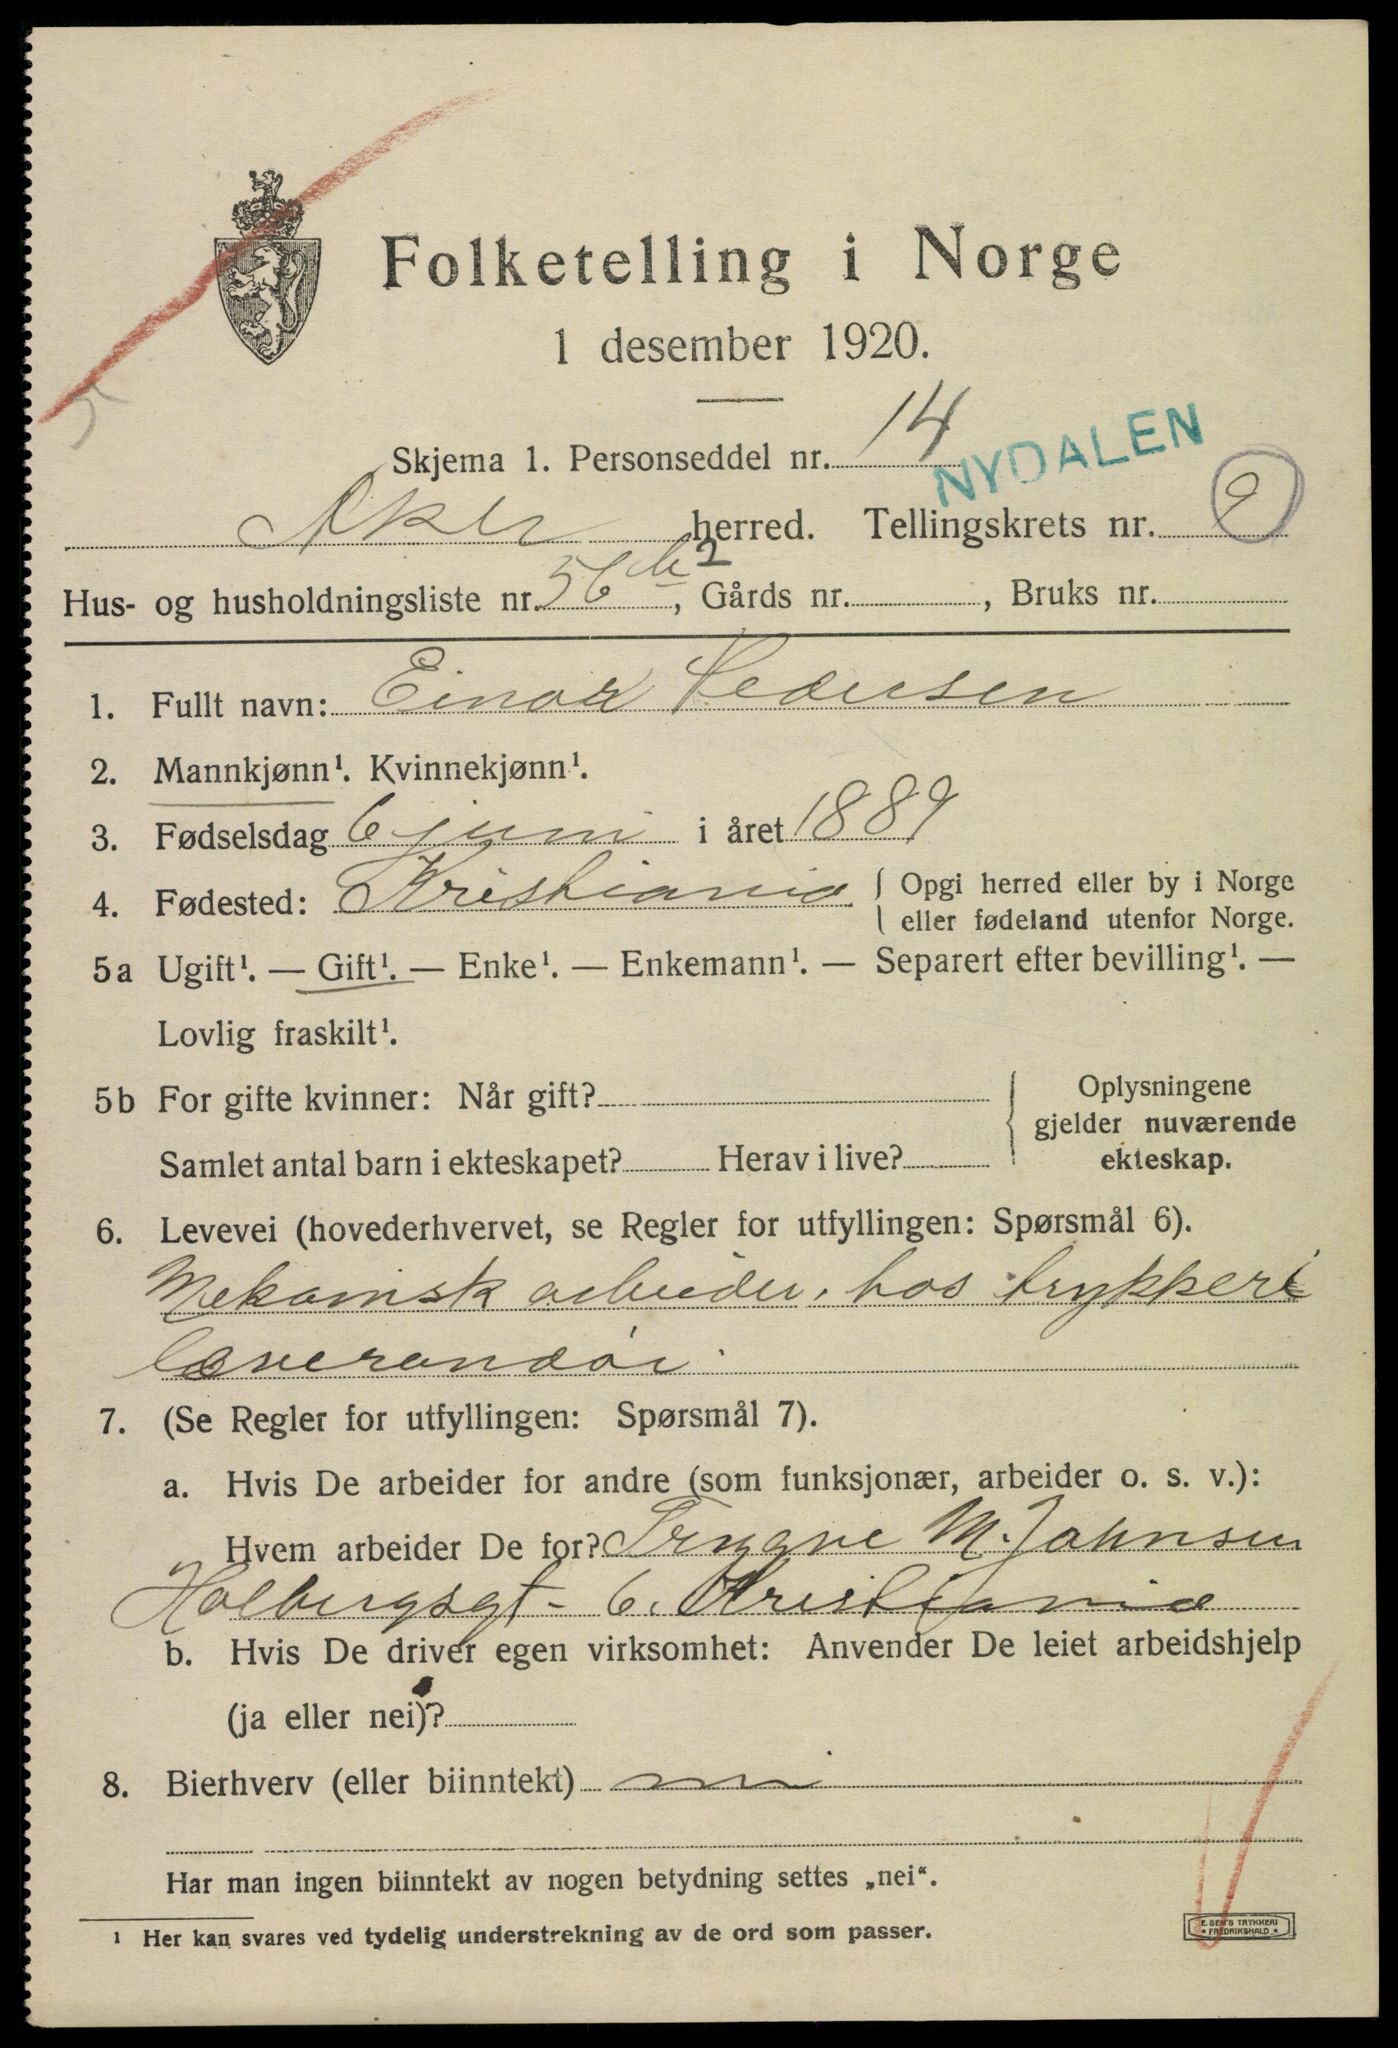 Folketelling i Norge
1 desember 1920.
Skjema 1. Personseddel nr. 14
NYDALEN
Aker herred. Tellingskrets nr. 9
Hus- og husholdningsliste nr. 56 b 2, Gårds nr. , Bruks nr.
1. Fullt navn: Einar Pedersen
2. Mannkjønn¹. Kvinnekjønn¹.
3. Fødselsdag 6 juni i året 1889
4. Fødested: Kristiania { Opgi herred eller by i Norge
eller fødeland utenfor Norge.
5a Ugift¹. — Gift¹. — Enke¹. — Enkemann¹. — Separert efter bevilling¹. —
Lovlig fraskilt¹.
5b For gifte kvinner: Når gift?
Samlet antal barn i ekteskapet? Herav i live?
Oplysningene
gjelder nuværende
ekteskap.
6. Levevei (hovederhvervet, se Regler for utfyllingen: Spørsmål 6).
Mekanisk arbeider. hos trykkeri
læverandør.
7. (Se Regler for utfyllingen: Spørsmål 7).
a. Hvis De arbeider for andre (som funksjonær, arbeider o. s. v.):
Hvem arbeider De for? Trygve M. Johnsen
Holbergsgt- 6. Kristiania
b. Hvis De driver egen virksomhet: Anvender De leiet arbeidshjelp
(ja eller nei)?
8. Bierhverv (eller biinntekt) nei
Har man ingen biinntekt av nogen betydning settes „nei“.
¹ Her kan svares ved tydelig understrekning av de ord som passer.
E. SEM'S TRYKKERI
FREDRIKSHALD